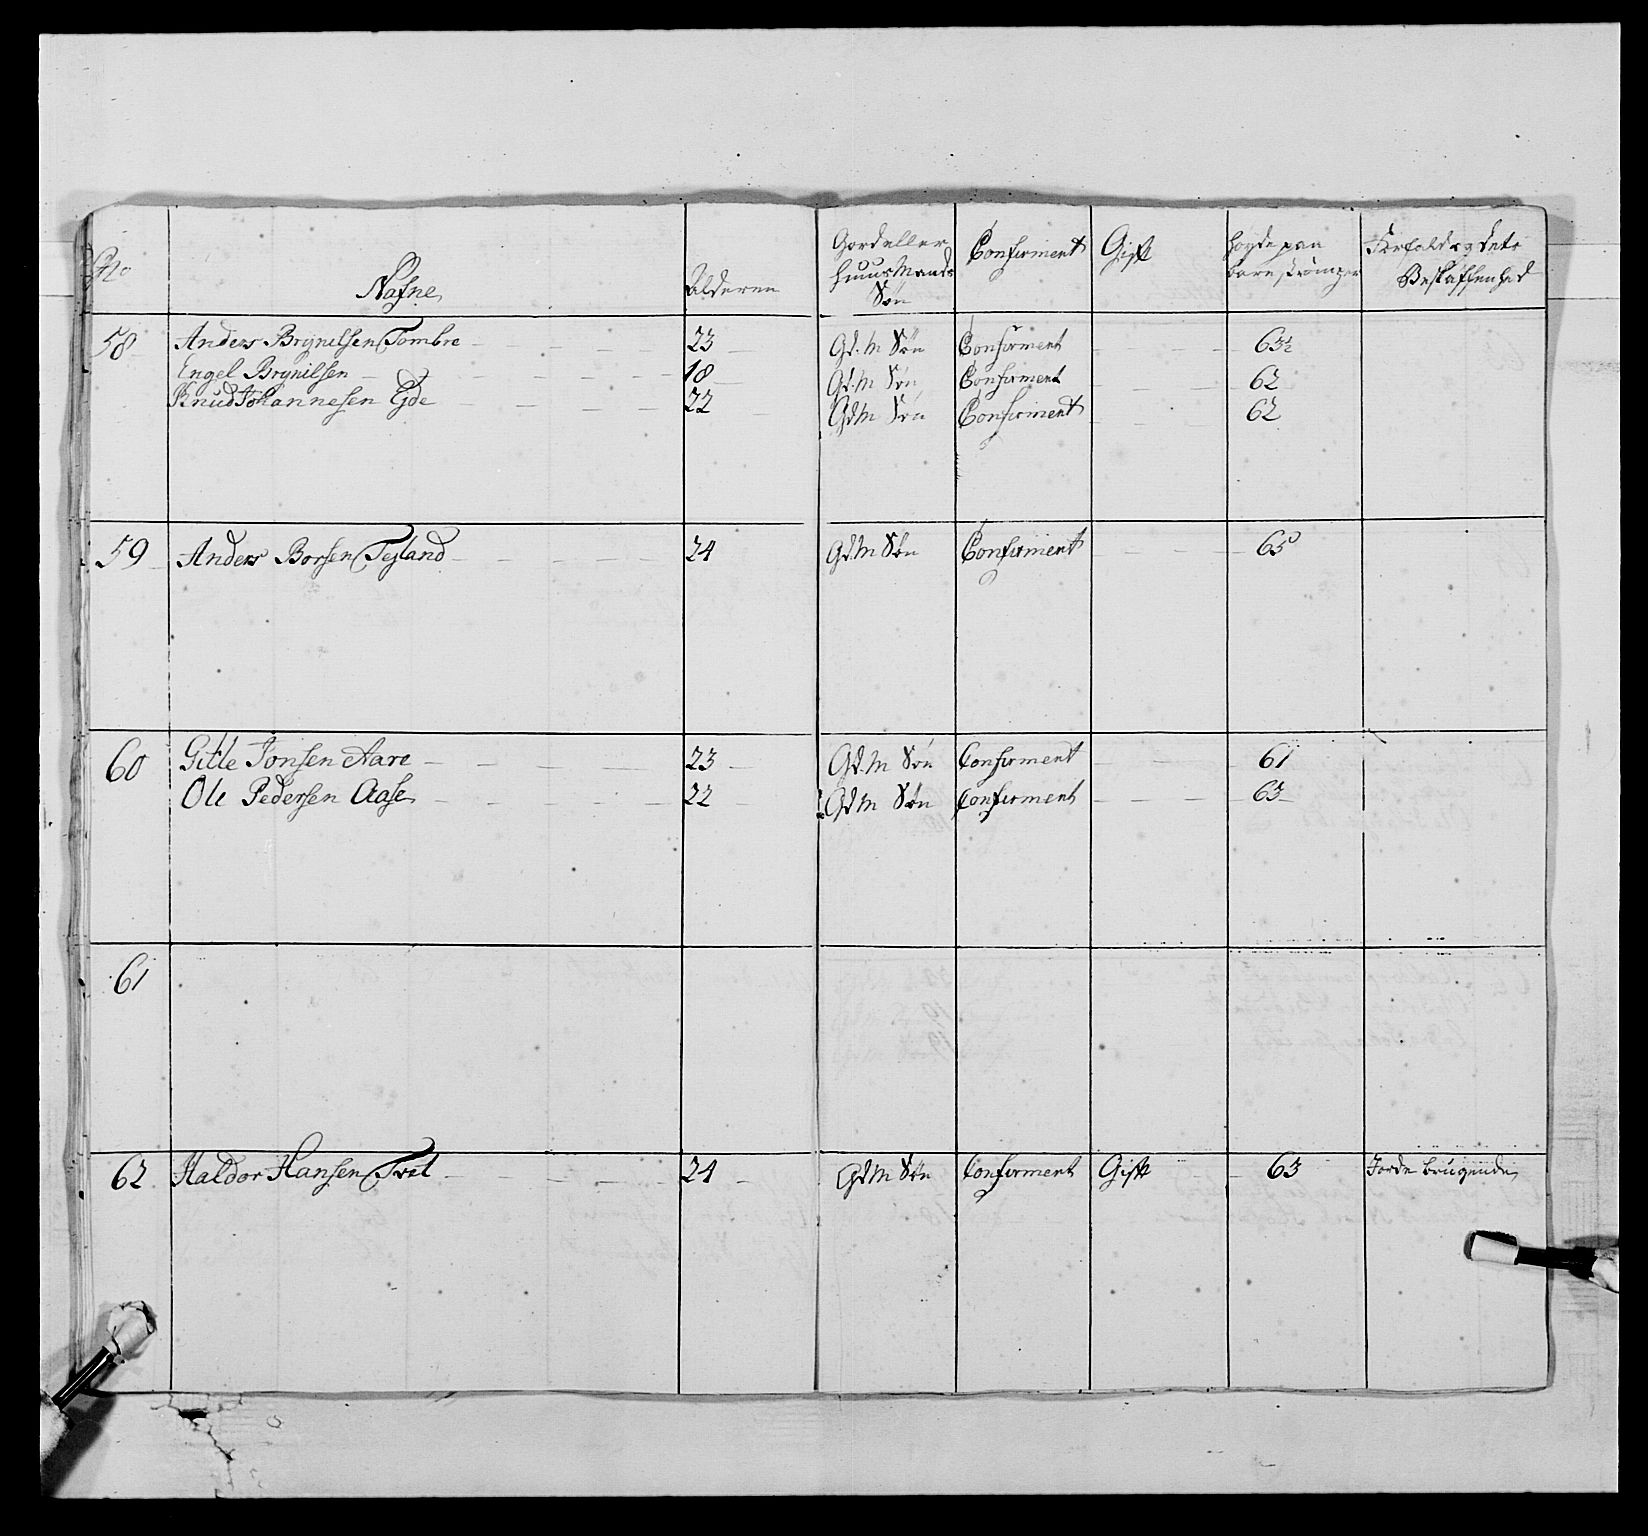 No Nafne Alderen Gord eller huus Mands Søn Confirment Gift høyde paa bare strømper Beskaffenhed
58 Anders Brynilsen Tombre 23 Gd. M Søn Confirment 63½
Engel Brynilsen 18 Gd. M Søn Confirment 62
Knud Johannesen Ejde 22 Gd M Søn Confirment 62
59 Anders Borsen Tesland 24 Gd. M Søn Confirment 65
60 Gitle Jonsen Aare 23 Gd. M Søn Confirment 61
Ole Pedersen Aase 22 Gd M Søn Confirment 63
61
62 Haldor Hansen Tvet 24 Gd M Søn Confirment Gift 63 Jorde brugende